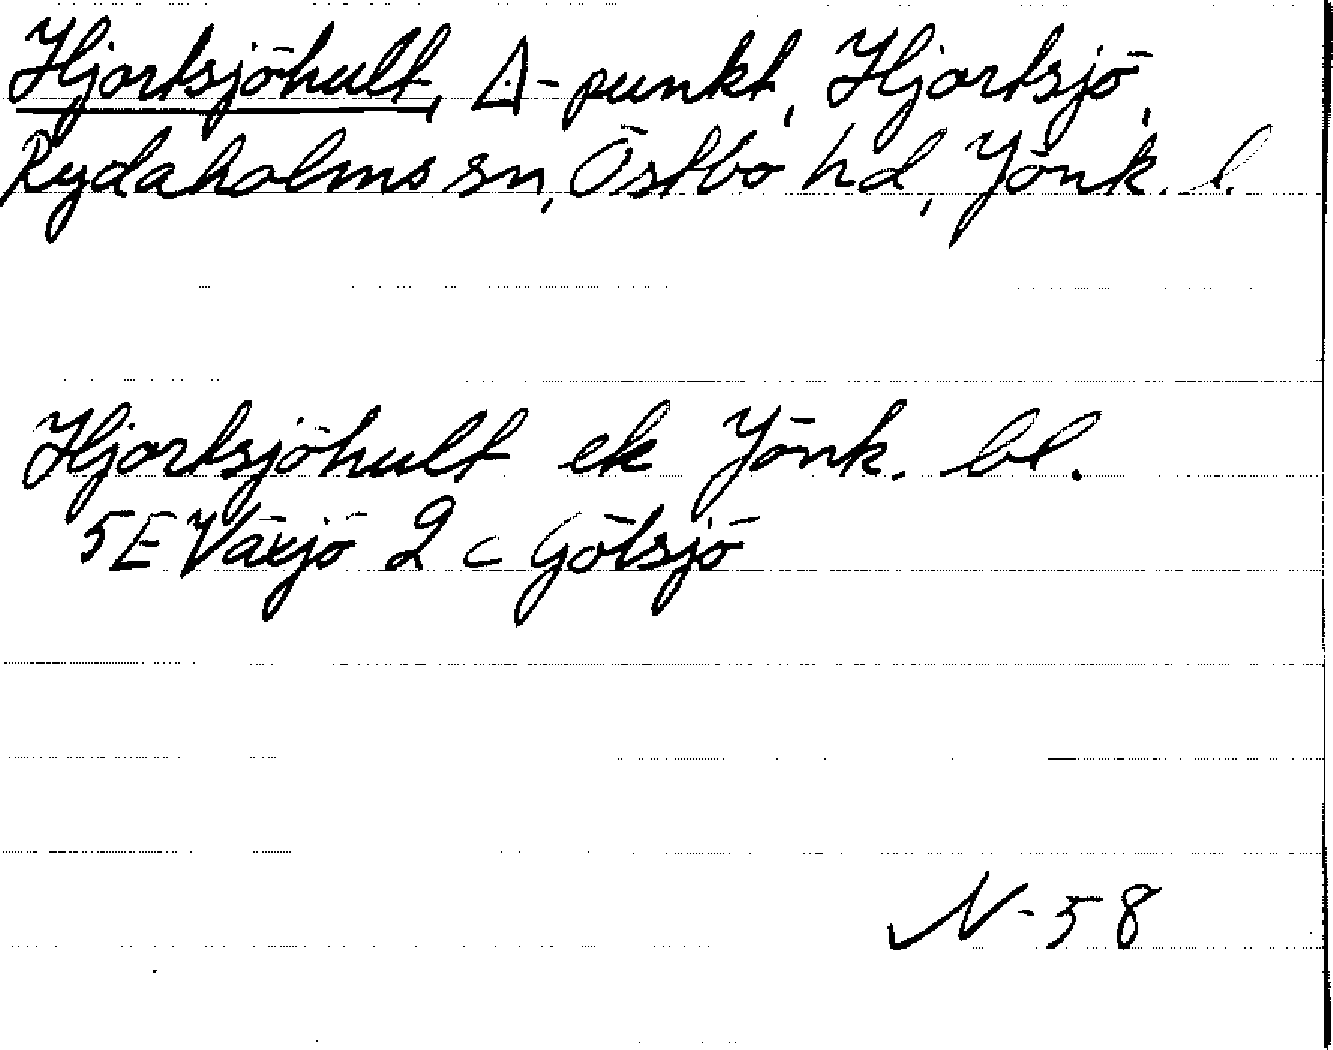 Hjortsjöhult, Δ-punkt, Hjortsjö,
Rydaholms sn, Östbo hd, Jönk. l.
Hjortsjöhult ek Jönk. bl.
5E Växjö 2 c Götsjö
N-58